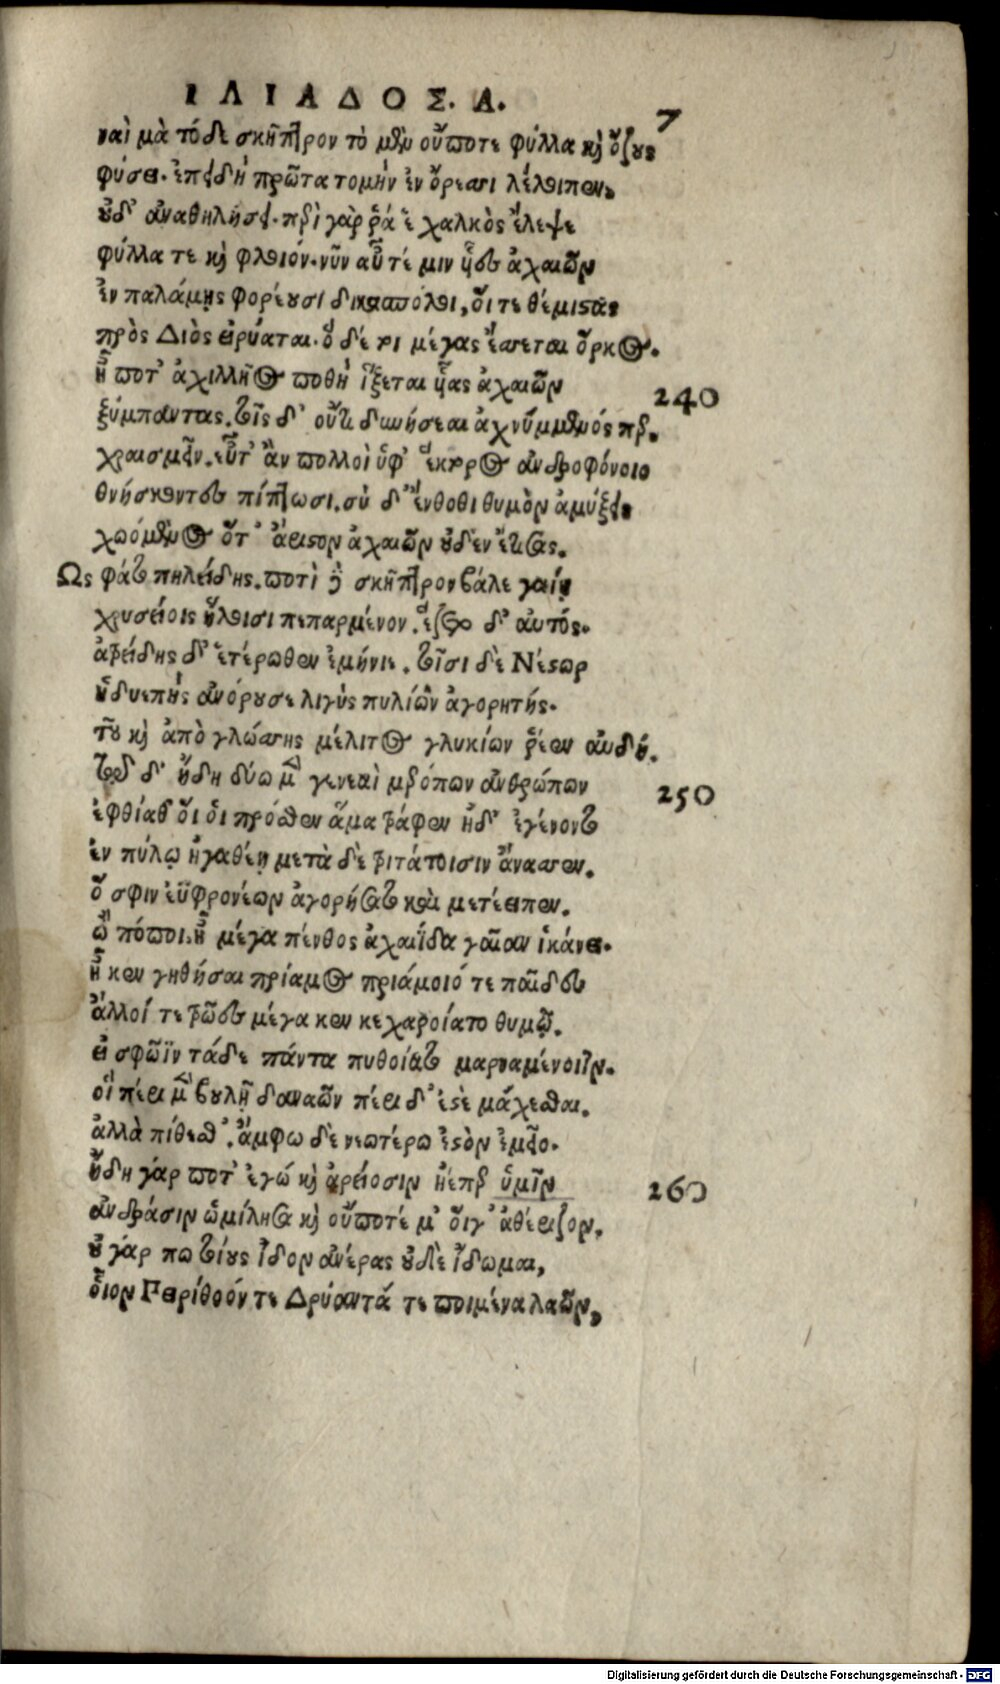 ΙΛΙΑΔΟΣ. Α.
7
ναὶ μὰ τόδε σκῆπτρον τὸ μὲν οὔποτε φύλλα καὶ ὄζους
φύσει. ἐπειδὴ πρῶτα τομὴν ἐν ὄρεσσι λέλοιπεν.
οὐδ' ἀναθηλήσει. περὶ γὰρ ῥά ἑ χαλκὸς ἔλεψε
φύλλα τε καὶ φλοιόν. νῦν αὖτέ μιν υἷες ἀχαιῶν
ἐν παλάμῃς φορέουσι δικασπόλοι, οἵ τε θέμιστας
πρὸς Διὸς εἰρύαται. ὁ δέ τοι μέγας ἔσσεται ὅρκος.
ἦ ποτ' ἀχιλλῆος ποθὴ ἵξεται υἷας ἀχαιῶν
240
ξύμπαντας. τοῖς δ' οὔτι δυνήσεαι ἀχνύμενός περ.
χραισμεῖν. εὖτ' ἂν πολλοὶ ὑφ' ἕκτορος ἀνδροφόνοιο
θνήσκοντες πίπτωσι. σὺ δ' ἔνδοθι θυμὸν ἀμύξεις
χωόμενος ὅτ' ἄριστον ἀχαιῶν οὐδὲν ἔτισας.
Ως φάτο πηλείδης. ποτὶ δὲ σκῆπτρον βάλε γαίῃ
χρυσείοις ἥλοισι πεπαρμένον. ἕζετο δ' αὐτός.
ἀτρείδης δ' ἑτέρωθεν ἐμήνιε. τοῖσι δὲ Νέστωρ
ἡδυεπὴς ἀνόρουσε λιγὺς πυλίων ἀγορητής.
τοῦ καὶ ἀπὸ γλώσσης μέλιτος γλυκίων ῥέεν αὐδή.
τῷ δ' ἤδη δύω μὲν γενεαὶ μερόπων ἀνθρώπων
250
ἐφθίαθ' οἵ οἱ πρόσθεν ἅμα τράφεν ἠδ' ἐγένοντο
ἐν πύλῳ ἠγαθέῃ μετὰ δὲ τριτάτοισιν ἄνασσεν.
ὅ σφιν ἐϋφρονέων ἀγορήσατο καὶ μετέειπεν.
ὢ πόποι. ἦ μέγα πένθος ἀχαιΐδα γαῖαν ἱκάνει.
ἦ κεν γηθήσαι πρίαμος πριάμοιό τε παῖδες
ἄλλοί τε τρῶες μέγα κεν κεχαροίατο θυμῷ.
εἰ σφῶϊν τάδε πάντα πυθοίατο μαρναμένοιϊν.
οἳ πέρι μὲν βουλῇ δαναῶν πέρι δ' ἐστὲ μάχεσθαι.
ἀλλὰ πίθεσθ'. ἄμφω δὲ νεωτέρω ἐστὸν ἐμεῖο.
ἤδη γάρ ποτ' ἐγώ καὶ ἀρείοσιν ἠέπερ ὑμῖν
260
ἀνδράσιν ὡμίλησα καὶ οὔποτέ μ' οἵγ' ἀθέριζον.
οὐ γάρ πω τοίους ἴδον ἀνέρας οὐδὲ ἴδωμαι,
οἷον Πειρίθοόν τε Δρύαντά τε ποιμένα λαῶν,
Digitalisierung gefördert durch die Deutsche Forschungsgemeinschaft - DFG